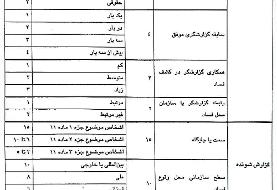 حقوقی ۲
سابقه گزارشگری موفق ۴
یک بار ۱
دو بار ۲
سه بار ۳
بیش از سه بار ۴
همکاری گزارشگر در کشف فساد ۳
کم ۱
متوسط ۲
زیاد ۳
رابطه گزارشگر با سازمان محل فساد ۲
مرتبط ۱
غیر مرتبط ۲
گزارش شونده
سمت یا جایگاه ۱۵
اشخاص موضوع جزء ۱ ماده ۱۱ ۱۵
اشخاص موضوع جزء ۲ ماده ۱۱
اشخاص موضوع جزء ۳ ماده ۱۱
سطح سازمانی محل وقوع ۱۰
بین‌المللی یا خارجی ۱۰
ملی ۸